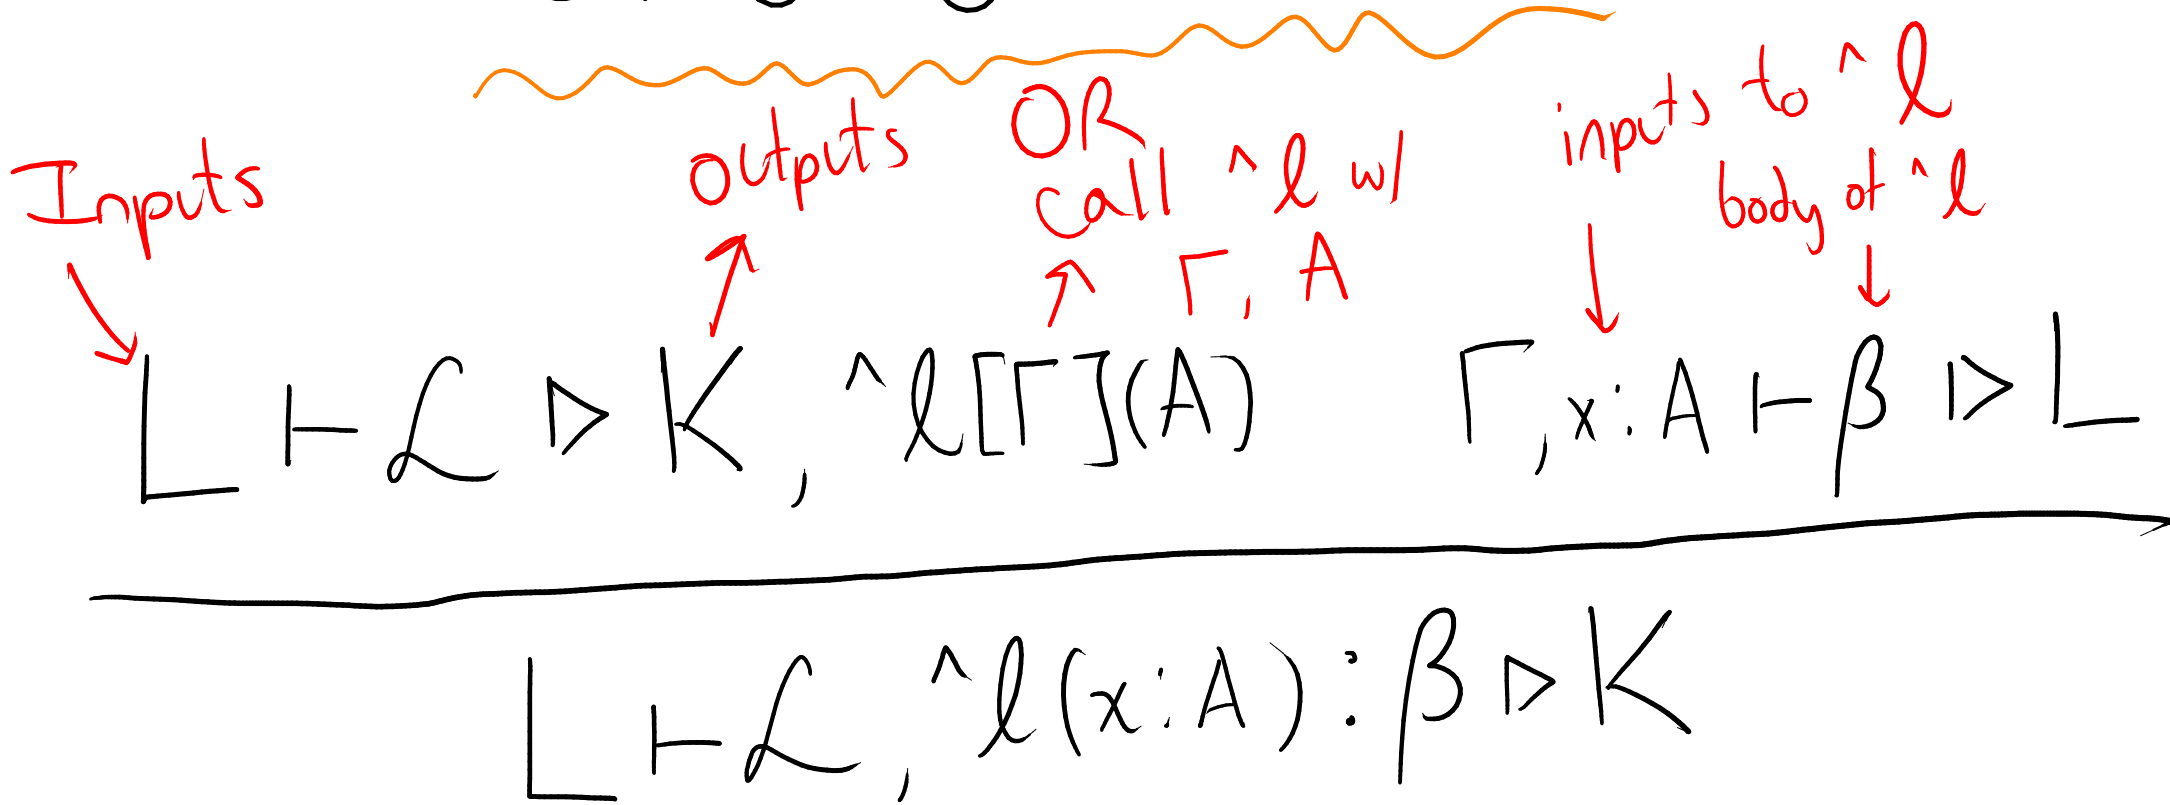 Inputs
outputs
OR
call ^ℓ w/
Γ, A
inputs to ^ℓ
body of ^ℓ
L ⊢ ℒ ▷ K, ^ℓ[Γ](A)    Γ, x:A ⊢ β ▷ L
L ⊢ ℒ, ^ℓ(x:A):β ▷ K